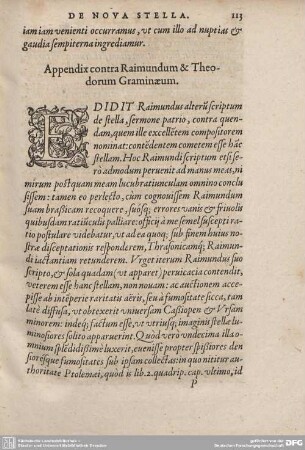 DE NOVA STELLA. 113
iam iam venienti occurramus, vt cum illo ad nuptias &
gaudia sempiterna ingrediamur.
Appendix contra Raimundum & Theo-
dorum Graminæum.
EDIDIT Raimundus alterũ scriptum
de stella, sermone patrio, contra quen-
dam, quem ille excellẽtem compositorem
nominat: contẽdentem cometem esse hãc
stellam. Hoc Raimundi scriptum etsi se-
rò admodum peruenit ad manus meas, ni
mirum postquam meam lucubratiunculam omnino conclu
sissem: tamen eo perlecto, cum cognouissem Raimundum
suam brassicam recoquere, suosq; errores vanis & friuolis
quibusdam ratiũculis palliare: officij à me semel suscepti ra
tio postulare videbatur, vt ad ea quoq; sub finem huius no-
stræ disceptationis responderem, Thrasonicamq; Raimun-
di iactantiam retunderem. Vrget iterum Raimundus suo
scripto, & sola quadam (vt apparet) peruicacia contendit,
veterem esse hanc stellam, non nouam: ac auctionem acce-
pisse ab intẽperie raritatis aëris, seu à fumositate sicca, tam
latè diffusa, vt obtexerit vniuersam Casiopen & Vrsam
minorem: indeq; factum esse, vt vtriusq; imaginis stellæ lu-
minosiores solito apparuerint. Quòd verò vndecima illa o-
mnium splẽdidissimè luxerit, euenisse propter spissiores den
sioresque fumositates sub ipsam collectas: in quo nititur au-
thoritate Ptolemæi, quòd is lib. 2. quadrip. cap. vltimo, id
P
DFG